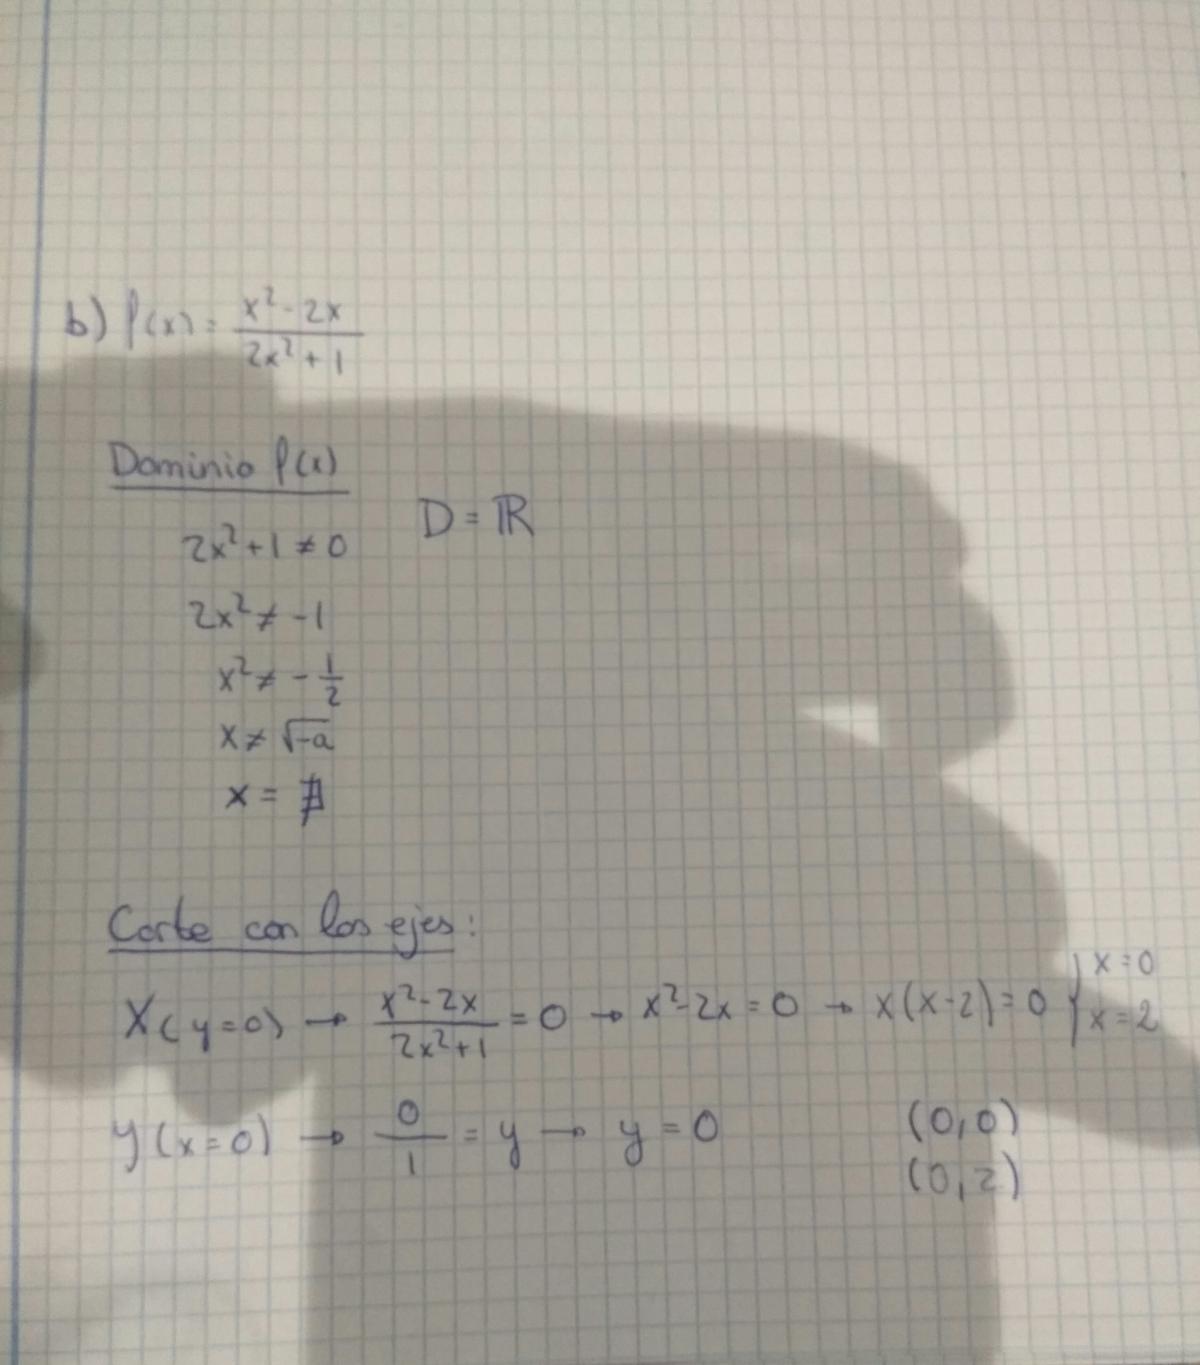 b) f(x) = (x² - 2x)/(2x² + 1)
Dominio f(x)
D = ℝ
2x² + 1 ≠ 0
2x² ≠ -1
x² ≠ - 1/2
x ≠ √-a
x = ∄
Corte con los ejes:
X (y=0) → (x² - 2x)/(2x² + 1) = 0 → x² - 2x = 0 → x(x-2) = 0 { x = 0
x = 2
y (x=0) → 0/1 = y → y = 0 (0,0)
(0,2)